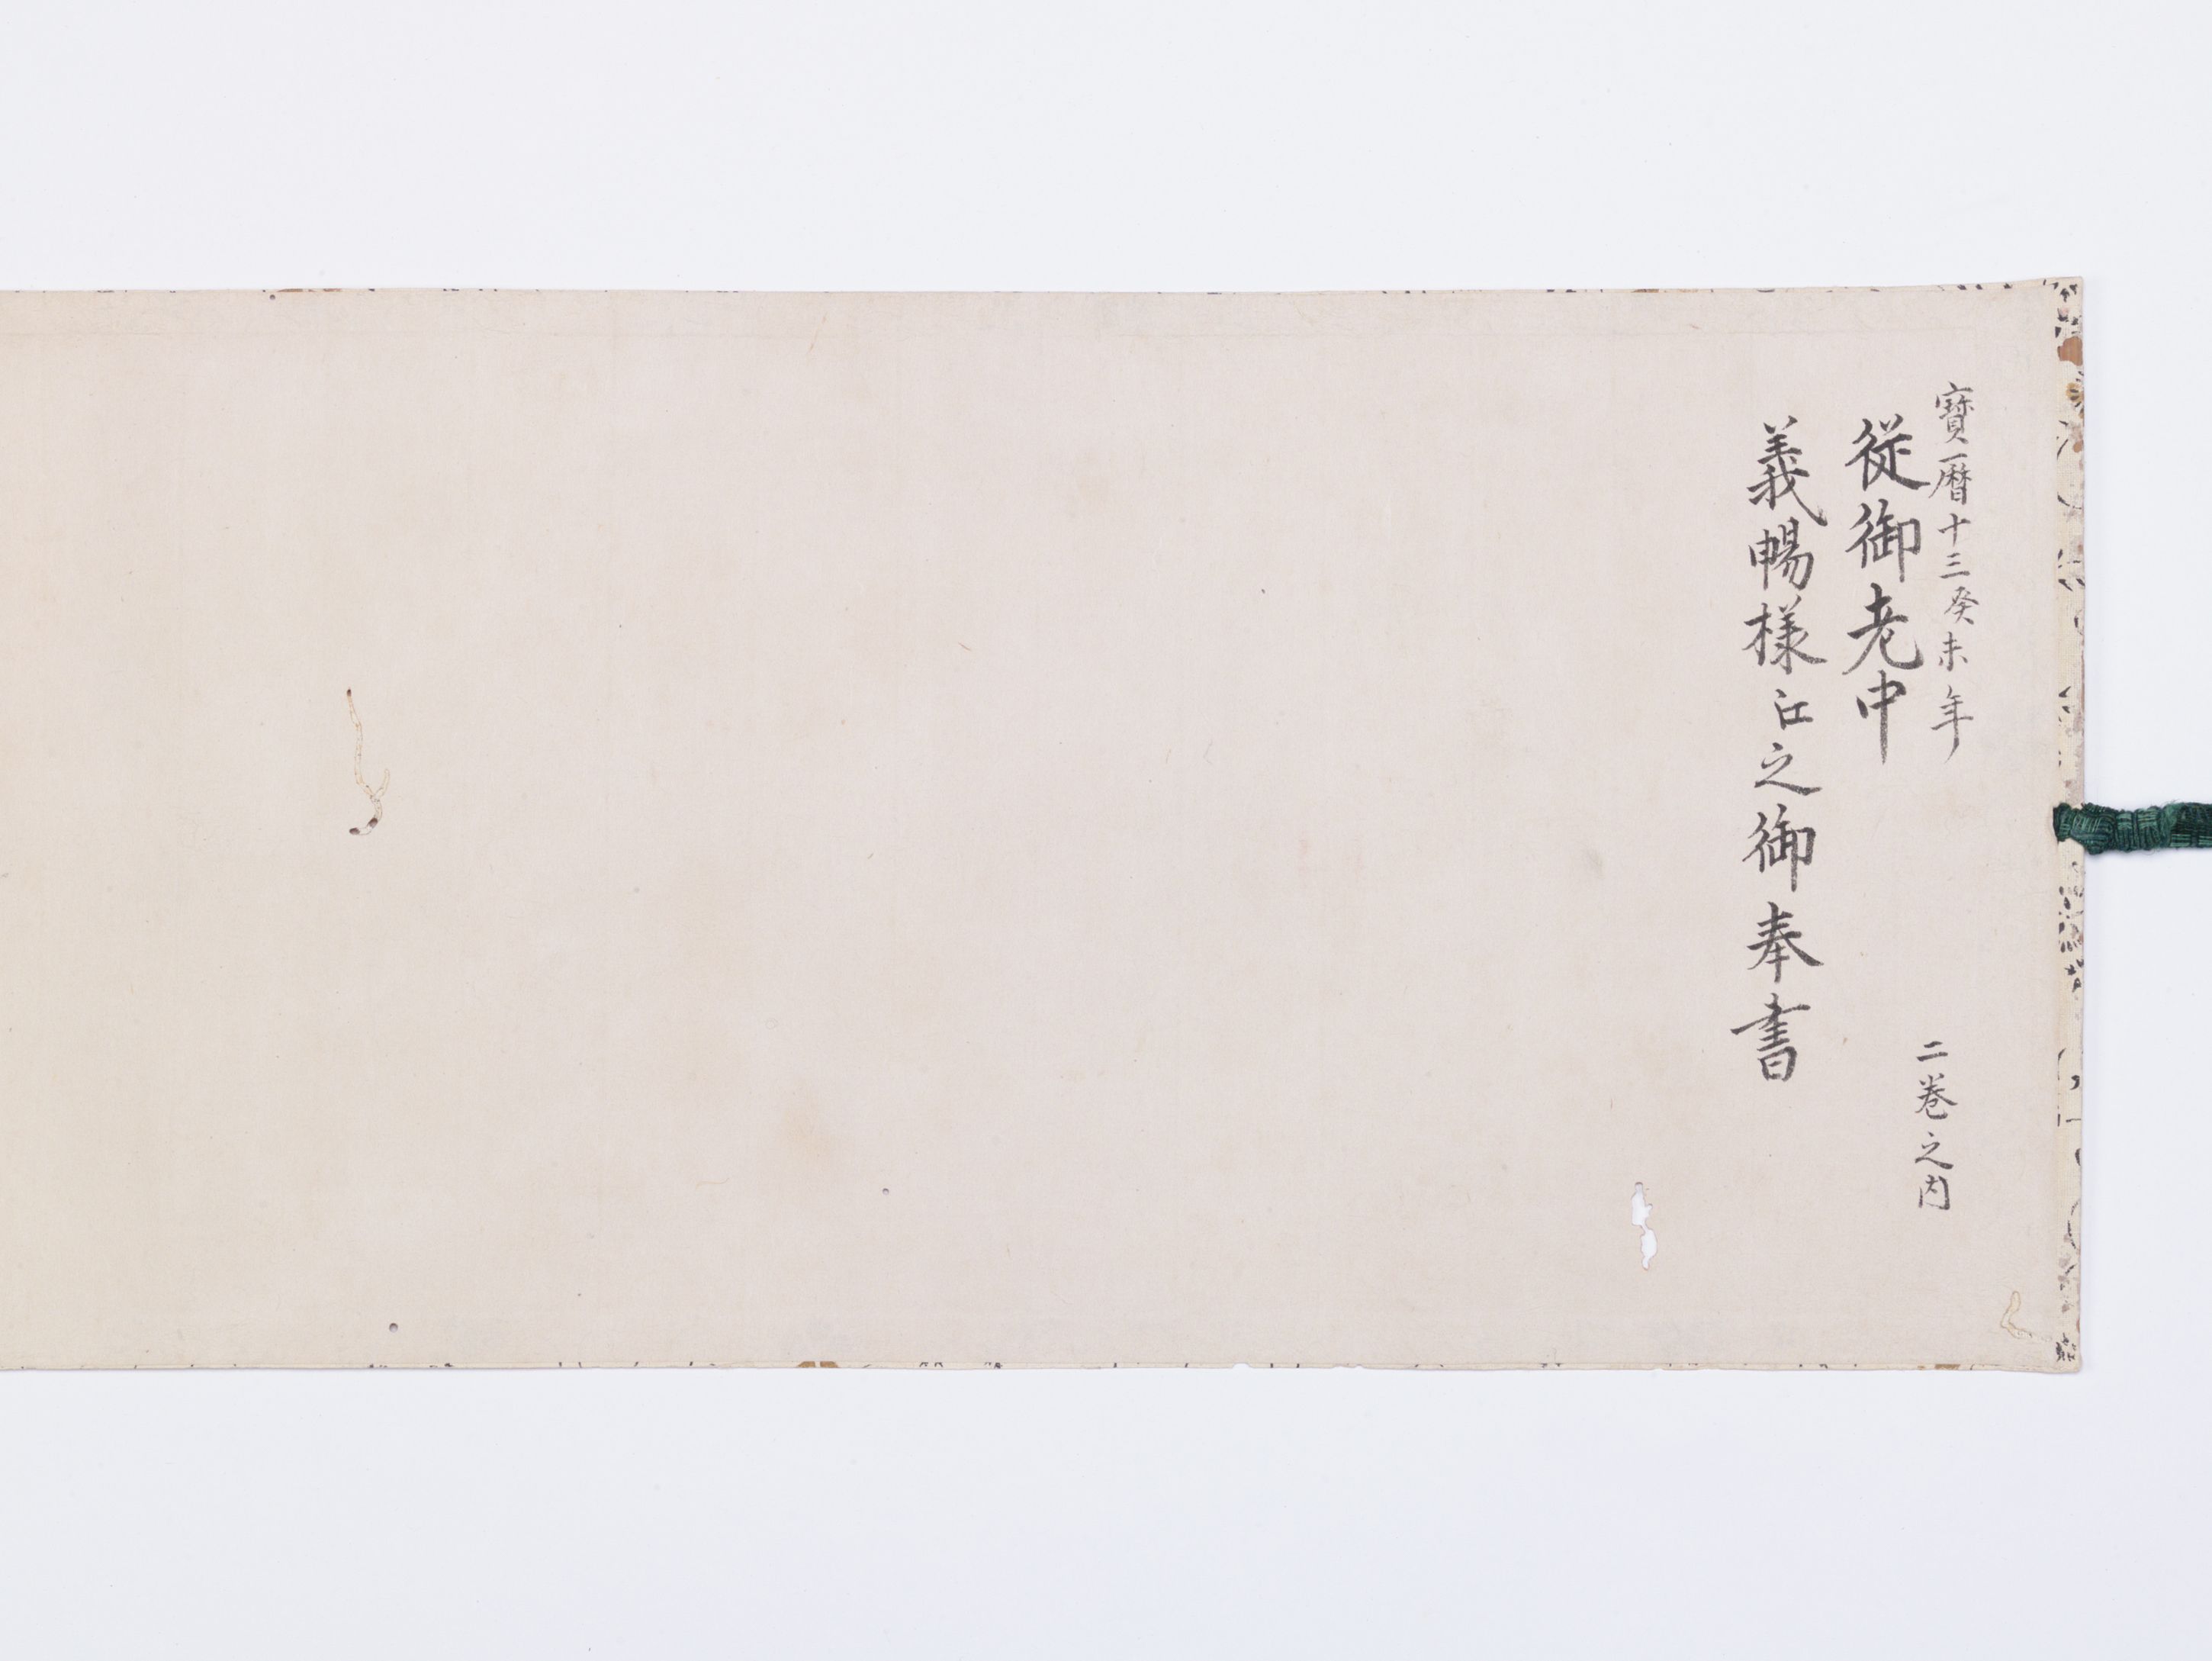 寶暦十三癸未年
二巻之内
従御老中
義暢様江之御奉書